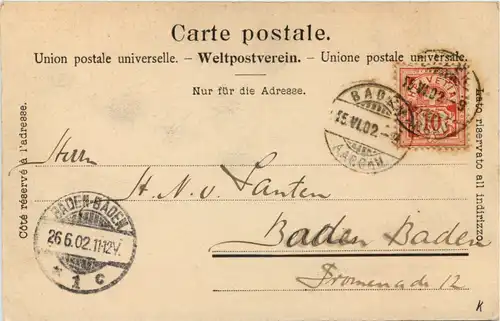 Carte postale.
Union postale universelle. – Weltpostverein. – Unione postale universale.
Nur für die Adresse.
Côté réservé à l'adresse.
Lato riservato all indirizzo.
BADEN
15.VI.02.
AARGAU
HELVETIA
10
Herrn
H. N. v. Santen
Baden Baden
Promenade 12
BADEN-BADEN
26.6.02.11-12V.
* 1 c
K